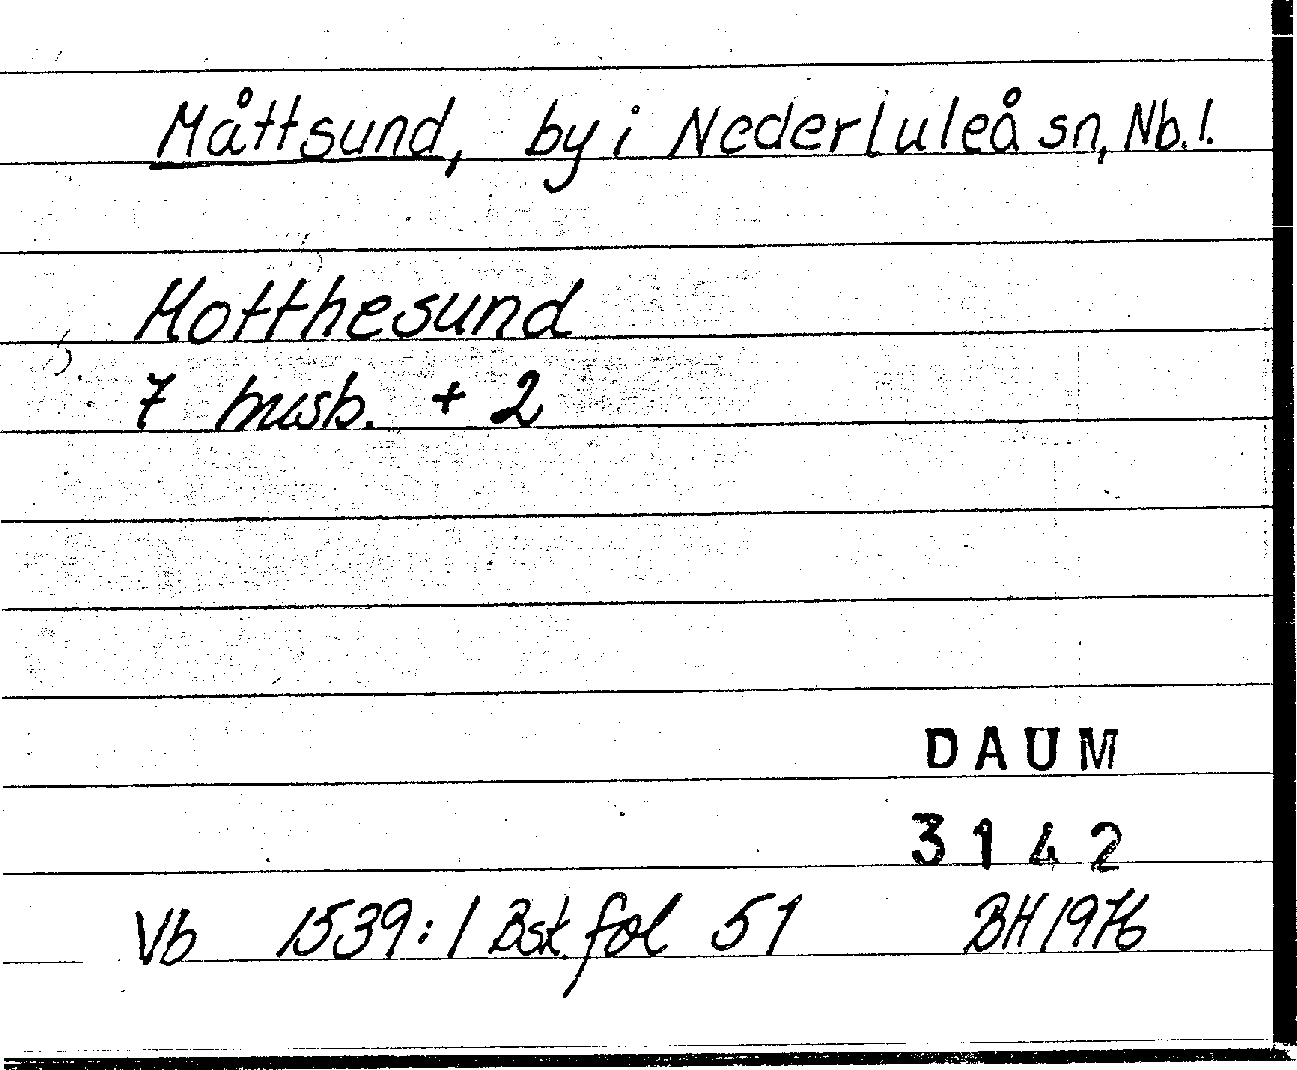 Måttsund, by i Nederluleå sn, Nb. l.
Motthesund
7 husb. + 2
DAUM
3142
Vb 1539:1 Bsk. fol 51 BH 1976